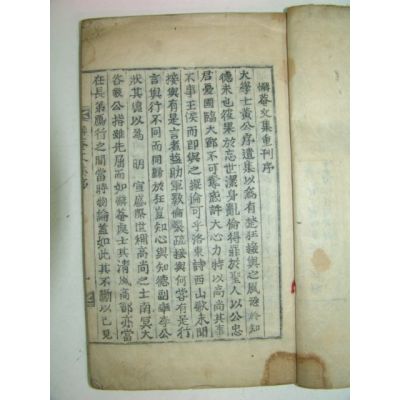 懶菴文集重刊序
大學士黃公序遺集以爲有楚狂接輿之風殆於知
德未也從果於忘世潔身亂倫得罪於聖人以公忠
君憂國臨大節不可奪底許大心力特以高尚其事
不事王侯而即與之擬倫可乎洛東詩西山歌未聞
接輿有是言者疏助軍敎倫製疏接輿何嘗有是行
言與行不同而同歸於狂豈知心與知德副學李公
狀其儀以爲 明 宣盛際世稱高尚之士南冥大
谷襲公揩雖先屬而如懶菴處士其淸風高節亦當
在長弟鴈行之間當時物論蓋如此其不勸以已見